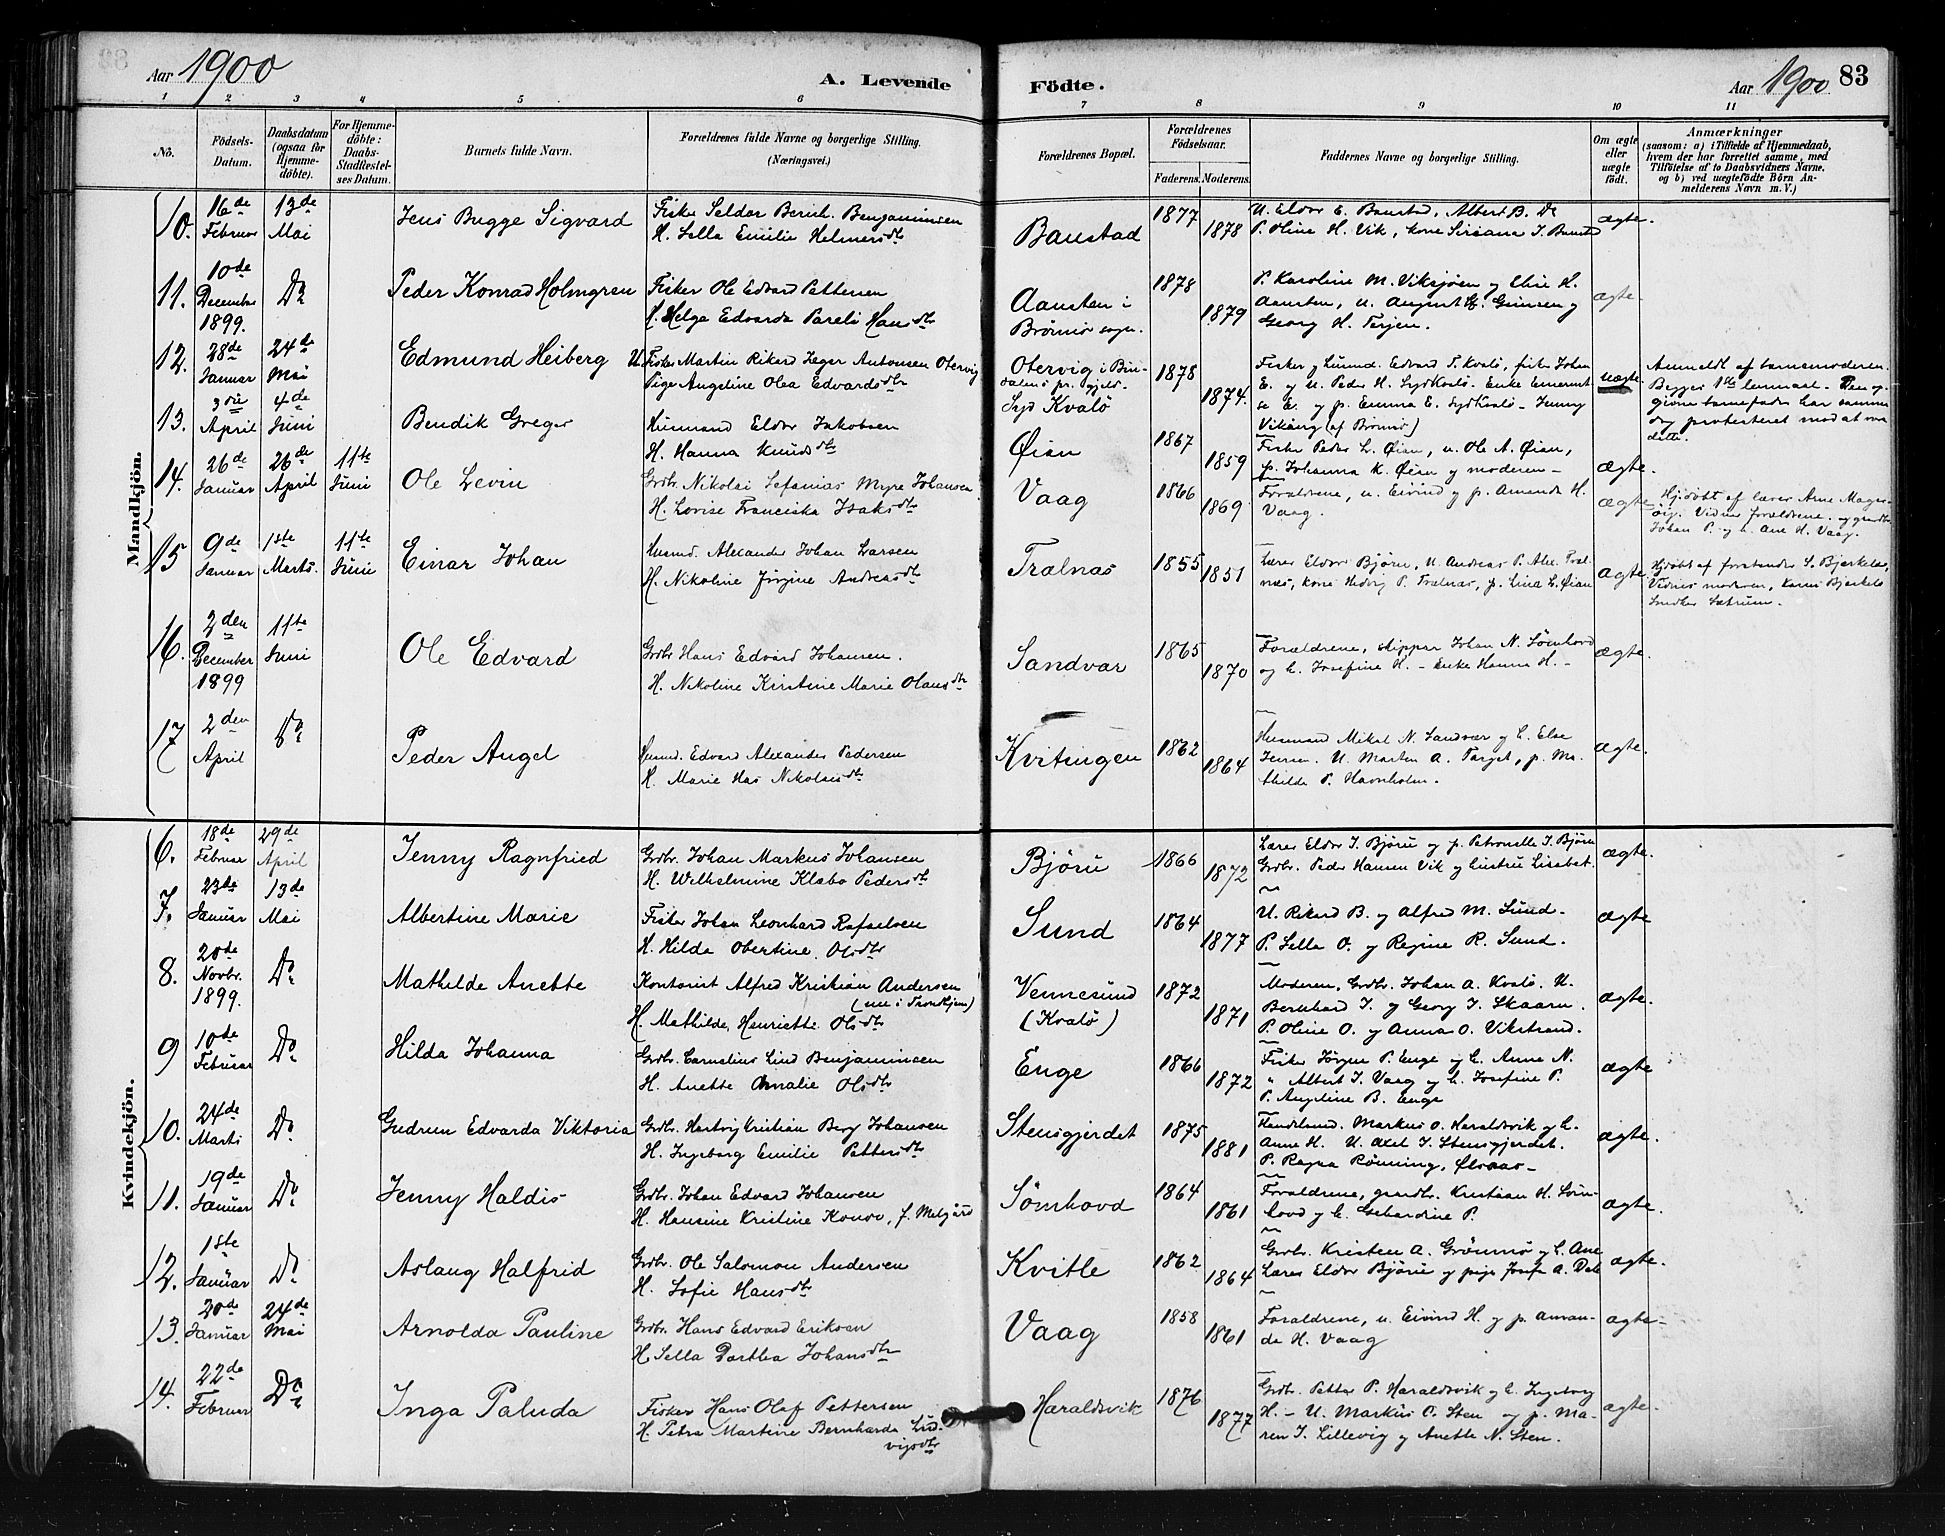 Aar 1900
A. Levende Födte.
Aar 1900 83
1 2 3 4 5 6 7 8 9 10 11
Nô.
Födsels-Datum.
Daabsdatum (ogsaa for Hjemme-döbte).
For Hjemme-döbte: Daabs-Stadfestel-ses Datum.
Barnets fulde Navn.
Forældrenes fulde Navne og borgerlige Stilling. (Næringsvei.)
Forældrenes Bopæl.
Forældrenes Födselsaar. Faderens. Moderens.
Faddernes Navne og borgerlige Stilling.
Om ægte eller uægte født.
Anmærkninger
(saasom: a) i Tilfælde af Hjemmedaab,
hvem der har forrettet samme, med
Tilföielse af to Daabsvidners Navne,
og b) ved uægtefödte Börn An-
melderens Navn m. V.)
Mandkjön.
10. 16de Februar 13de Mai Jens Bugge Sigvard Fisker Seldor Berich. Benjaminsen
H. Sella Emilie Helmersdtr Baustad 1877 1878 U. Eldor E. Baustad, Albert B. Do
P. Oline H. Vik, kone Siriana I. Baustad ægte.
11. 10de December 1899. Do Peder Konrad Holmgren Fisker Ole Edvard Pettersen
H. Helga Edvarda Pareli Hansdtr Aunsten i Brönnö sogn. 1878 1879 P. Karoline M. Viksjøen og Eline H.
Aunsten, u. August G. Grimsen og
Georg H. Terjen. ægte.
12. 28de Januar 24de Mai Edmund Heiberg U. Fisker Martin Rikard Zeger Antonsen Otervig
Pige Angeline Olea Edvardsdtr Otervig i Bin-
dalens pr.gjeld-
Syd Kvalö 1878 1874. Fisker og Husmd. Edvard T. Kvalö, fisker Johan
E. og u. Peder H. SydKvalö. Enke
E. og p. Emma E. SydKvalö - Jenny
Viking (af Brönnö) uægte Anmeldt af barnemoderen.
Begges 1ste leiermaal. Den op-
givne barnefader har
protesteret mod at være
dette.
13. 3die April 4de Juni Bendik Greger Husmand Eldor Jakobsen
H. Hanna Knudsdtr Øien 1867 1859 Fisker Peder L. Øien, u. Ole A. Øien,
p. Johanna K. Øien og moderen - ægte.
14. 26de Januar 26de April 11te Juni Ole Levin Grdbr. Nikolai Sefanias Myre Johansen
H. Lovise Franciska Isaksdtr Vaag 1866 1869 Forældrene, u. Eivind og p. Amanda H.
Vaag. ægte Hj.döbt af lærer Arne Mager-
öig. Vidner forældrene og grdbr.
Johan P. og h. Ane H. Vaag.
15 9de Januar 1ste Marts. 11te Juni Einar Johan Husmd. Alexander Johan Larsen
H. Nikoline Jörgine Andreasdtr Trælnæs 1855 1851 Lærer Eldor Björu, U. Andreas P. Alex. Træl-
næs, kone Hedvig P. Trælnæs, p. Lina L. Øien ægte. Hj.döbt af forstander S. Bjerkelo,
Vidner moderen, Karen Bjerkelo
Snedker Sætrum.
16. 2den December 1899 11te Juni Ole Edvard Grdbr. Hans Edvard Johansen.
H. Nikoline Kristine Marie Olausdtr Sandvær 1865 1870 Forældrene, skipper Johan N. Sömhovd
og h. Josefine H. - Enke Hanna H. - ægte.
17 2den April Do Peder Angel Husmd. Edvard Alexander Pedersen
H. Marie Has Nikolaisdtr Kvitingen 1862 1864 Husmand Mikal N. Sandvær og h. Else
Jensen. U. Marten A. Torget, p. Ma-
thilde P. Havnholm. ægte.
Kvindekjön.
6. 18de Februar 29de April Jenny Ragnfried Grdbr. Johan Markus Johansen
H. Wilhelmine Klæbo Pedersdtr Björu 1866 1872 Lærer Eldor I. Björu og p. Petronelle I. Björu
Grdbr. Peder Hansen Vik og hustru Lisabet. ægte.
7. 23de Januar 13de Mai Albertine Marie Fisker Johan Leonhard Rafaelsen
H. Hilda Obertine Olsdtr Sund 1864 1877 U. Rikard B. og Alfred M. Sund.
P. Sella O. og Regine R. Sund. ægte
8. 20de Novbr. 1899. Do Mathilde Anette Kontorist Alfred Kristian Andersen
(nu i Trondhjem)
H. Mathilde Henriette Olsdtr Vennesund (Kvalö) 1872 1871 Moderen, Grdbr. Johan A. Kvalö. U.
Bernhard I. og Georg I. Skaarn.
P. Oline O. og Anna O. Vikstrand. ægte.
9 10de Februar Do Hilda Johanna Grdbr. Cornelius Lind Benjaminsen
H. Anette Amalie Olsdtr Enge 1866 1872 Fisker Jörgen P. Enge og h. Anna N.
" Albert I. Vaag og h. Josefine P.
P. Angeline B. Enge ægte
10. 24de Marts Do Gudrun Edvarda Viktoria Grdbr. Hartvig Kristian Berg Johansen
H. Ingeborg Emilie Pettersdtr Stensgjerdet 1875 1881 Handelsmd. Markus O. Haraldsvik og h.
Anne H. U. Axel I. Stensgjerdet.
P. Ragna Rönning, Ølsaas- ægte.
11. 19de Januar Do Jenny Haldis Grdbr. Johan Edvard Johansen
H. Hansine Kristine Konow, f. Melgård Sömhovd 1864 1861 Forældrene, grdbr. Kristian H. Söm-
hovd og h. Gerhardine P. ægte.
12. 1ste Januar Do Aslaug Halfrid Grdbr. Ole Salomon Andersen
H. Sofie Hansdtr Kvitle 1862 1864 Grdbr. Kristen A. Grönmö og h. Ane
Lærer Eldor Björu og pige Josefa A. Dale ægte.
13. 20de Januar 24de Mai Arnolda Pauline Grdbr. Hans Edvard Eriksen
H. Sella Dorthea Johansdtr Vaag 1858 1861 Forældrene, u. Eivind H. og p. Aman-
da H. Vaag ægte-
14. 22de Februar Do Inga Paluda Fisker Hans Olaf Pettersen
H. Petra Martine Bernharda Lud-
vigsdtr Haraldsvik 1876 1877 Grdbr. Petter P. Haraldsvik og h. Ingeborg
H. - U. Markus P. Sten og p. Ma-
ren I. Lillevig og Anette N. Sten. ægte.